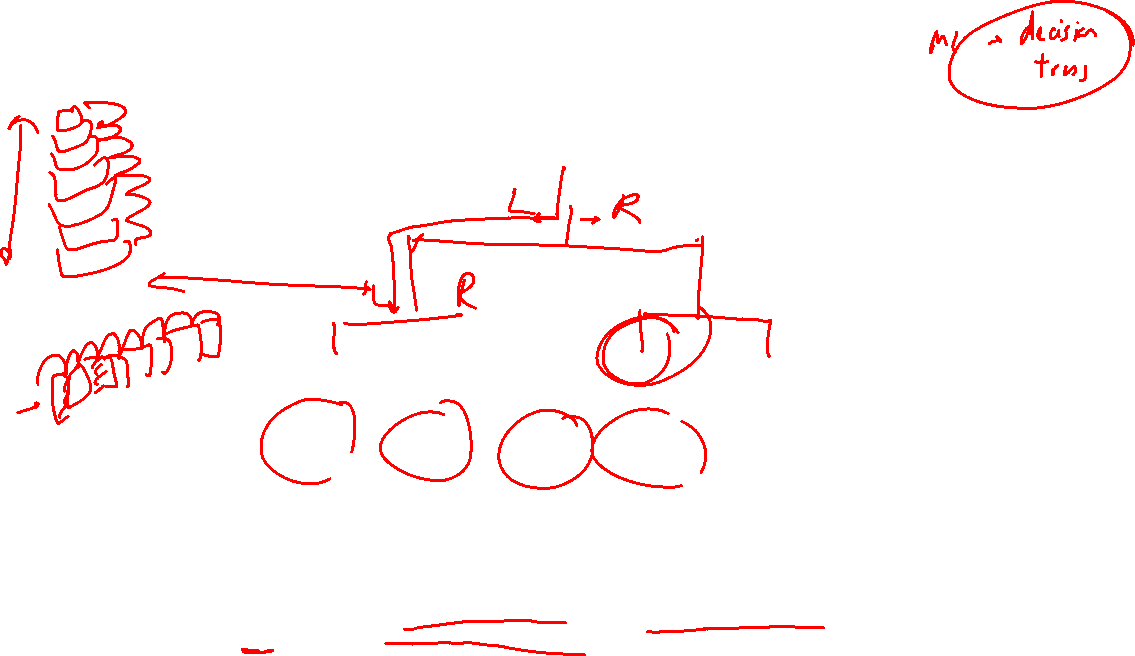 ML → decision
trees
L → R
L R